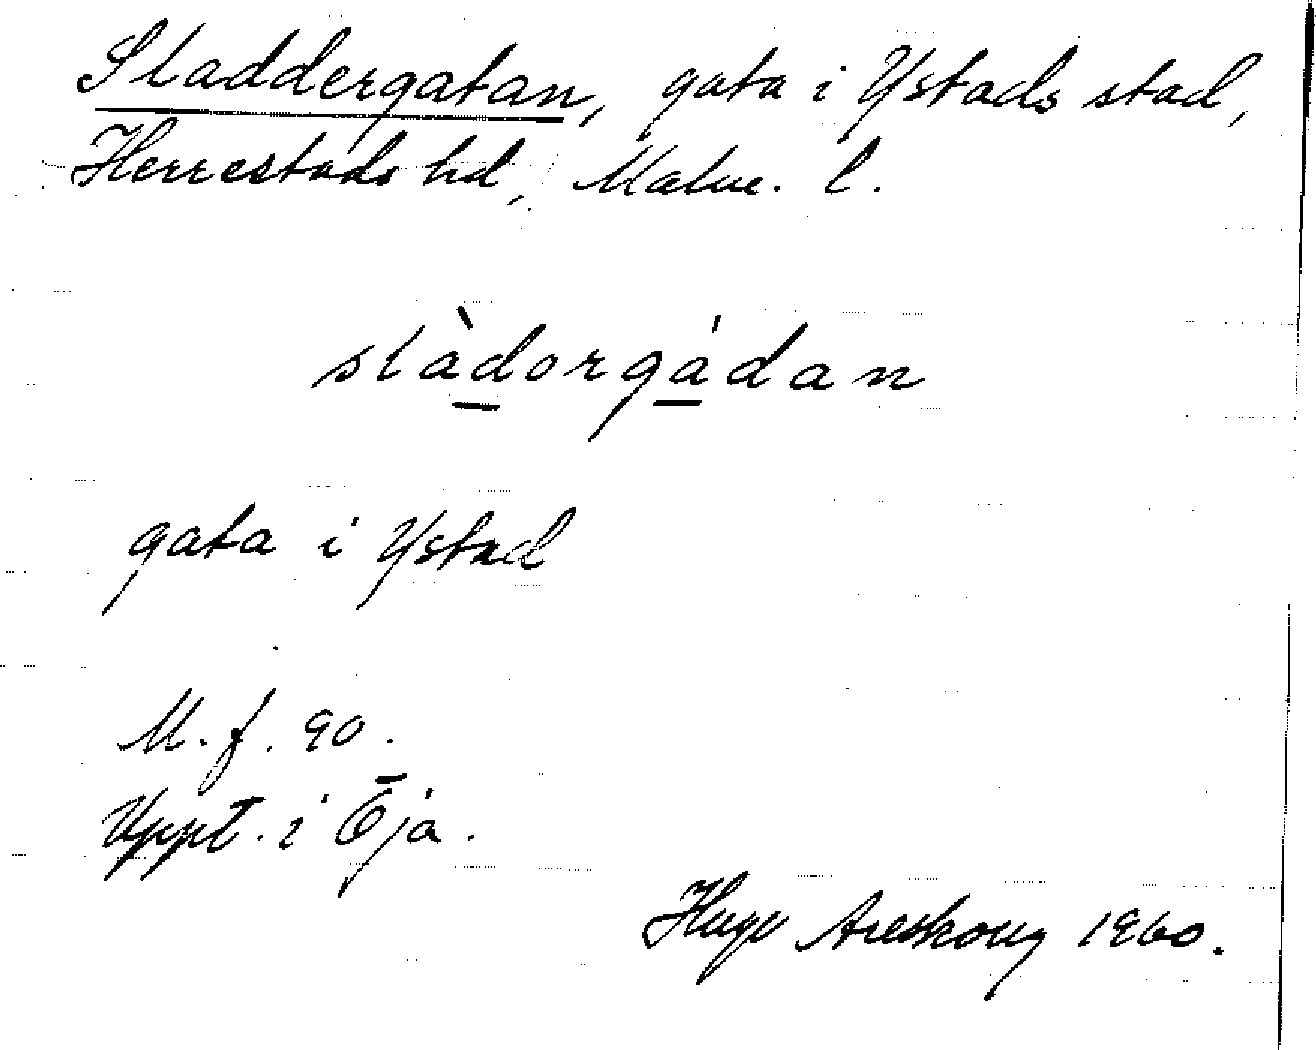 Sladdergatan, gata i Ystads stad,
Herrestads hd, Malm. l.
slàdorgádan
gata i Ystad
M. f. 90.
Uppt. i Öja.
Hugo Areskoug 1960.